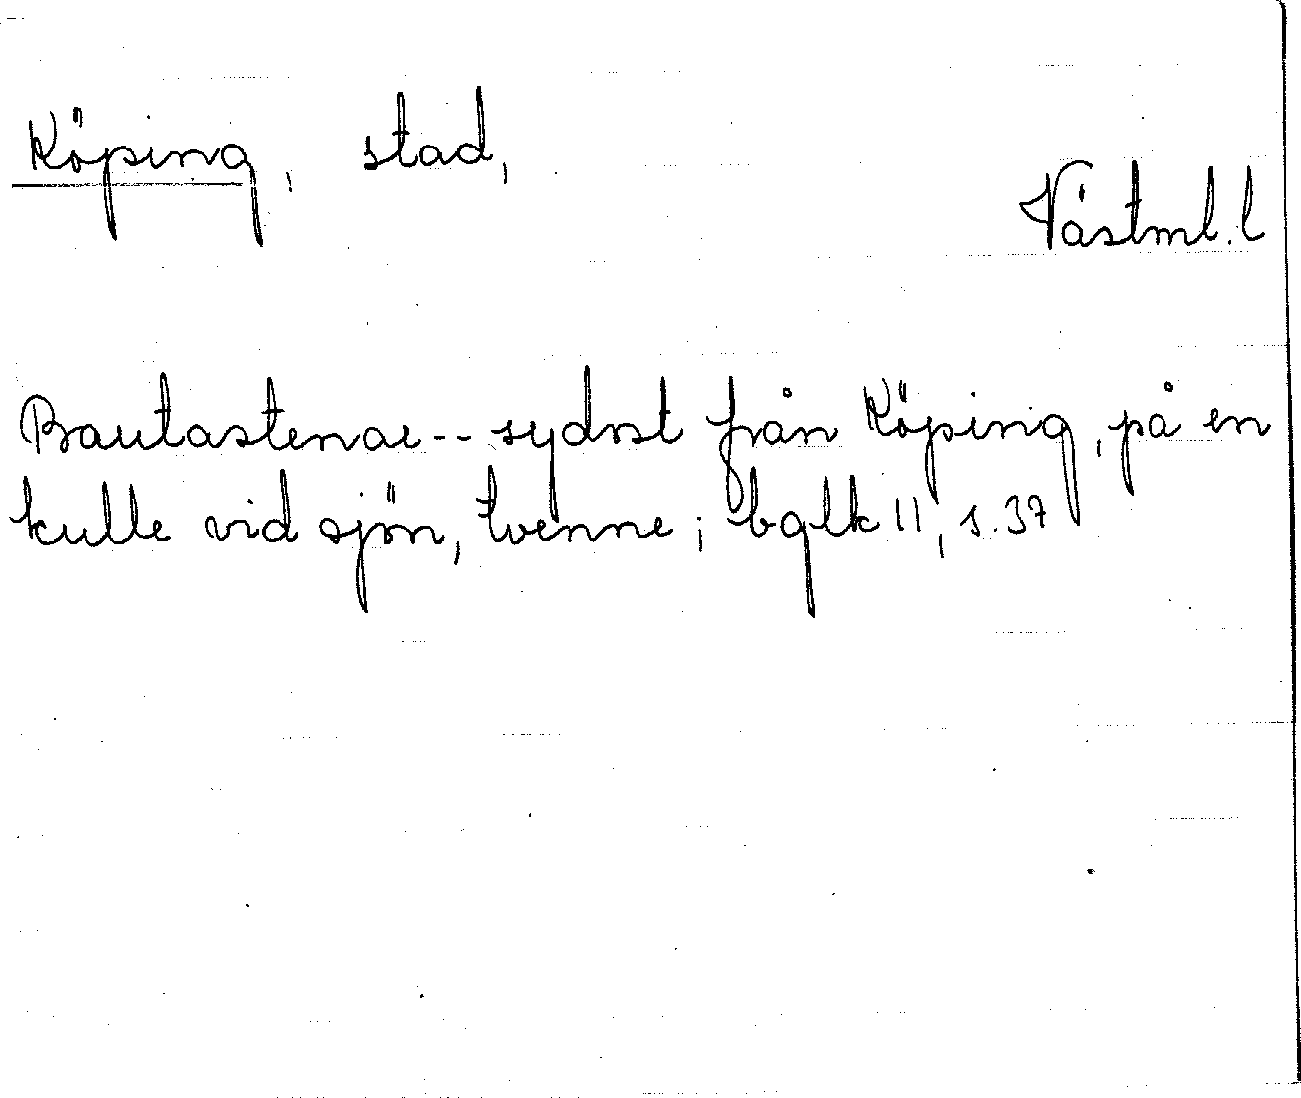 Köping, stad,
Västml. l
Bautastenar -- sydost från Köping, på en
kulle vid sjön, tvenne; bglk 11, s. 37